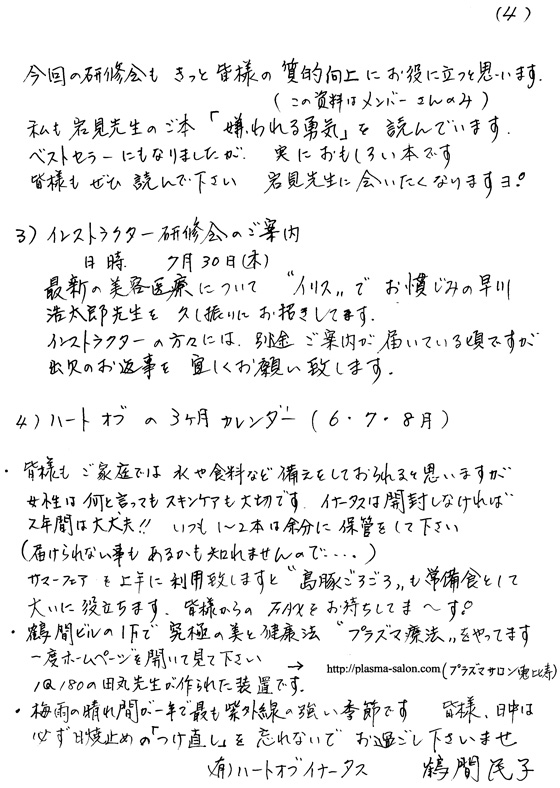 (4)
今回の研修会も きっと皆様の 質的向上にお役に立つと思います.
(この資料はメンバーさんのみ)
私も 岩見先生のご本「嫌われる勇気」を 読んでいます.
ベストセラーにもなりましたが. 実におもしろい本です
皆様も ぜひ 読んで下さい 岩見先生に会いたくなりますヨ!
3) インストラクター研修会のご案内
日時. 7月30日(木)
最新の美容医療について “イリス„で お慣じみの早川
浩太郎先生を 久し振りにお招きしてます.
インストラクターの方々には. 別途 ご案内が届いている頃ですが
出欠のお返事を 宜しくお願い致します.
4) ハート オブ の 3ヶ月 カレンダー (6・7・8月)
・皆様も ご家庭では 水や食料など 備えをしておられると思いますが
女性は何と言ってもスキンケアも大切です. イナータスは開封しなければ
2年間は大丈夫!! いつも 1〜2本は余分に 保管をして下さい
(届けられない事も あるかも知れませんので・・・.)
サマーフェア を上手に利用致しますと“島豚ごろごろ„も常備食として
大いに役立ちます. 皆様からの FAXをお待ちしてま〜す!
・鶴間ビルの1Fで 究極の美と健康法 “プラズマ療法„をやってます
一度ホームページを開いて見て下さい → http://plasma-salon.com (プラズマサロン恵比寿)
IQ180の田丸先生が作られた装置です.
・梅雨の晴れ間が一年で最も紫外線の強い季節です 皆様、日中は
必ず日焼止めの「つけ直し」を忘れないで お過ごし下さいませ
(有)ハートオブイナータス 鶴間民子